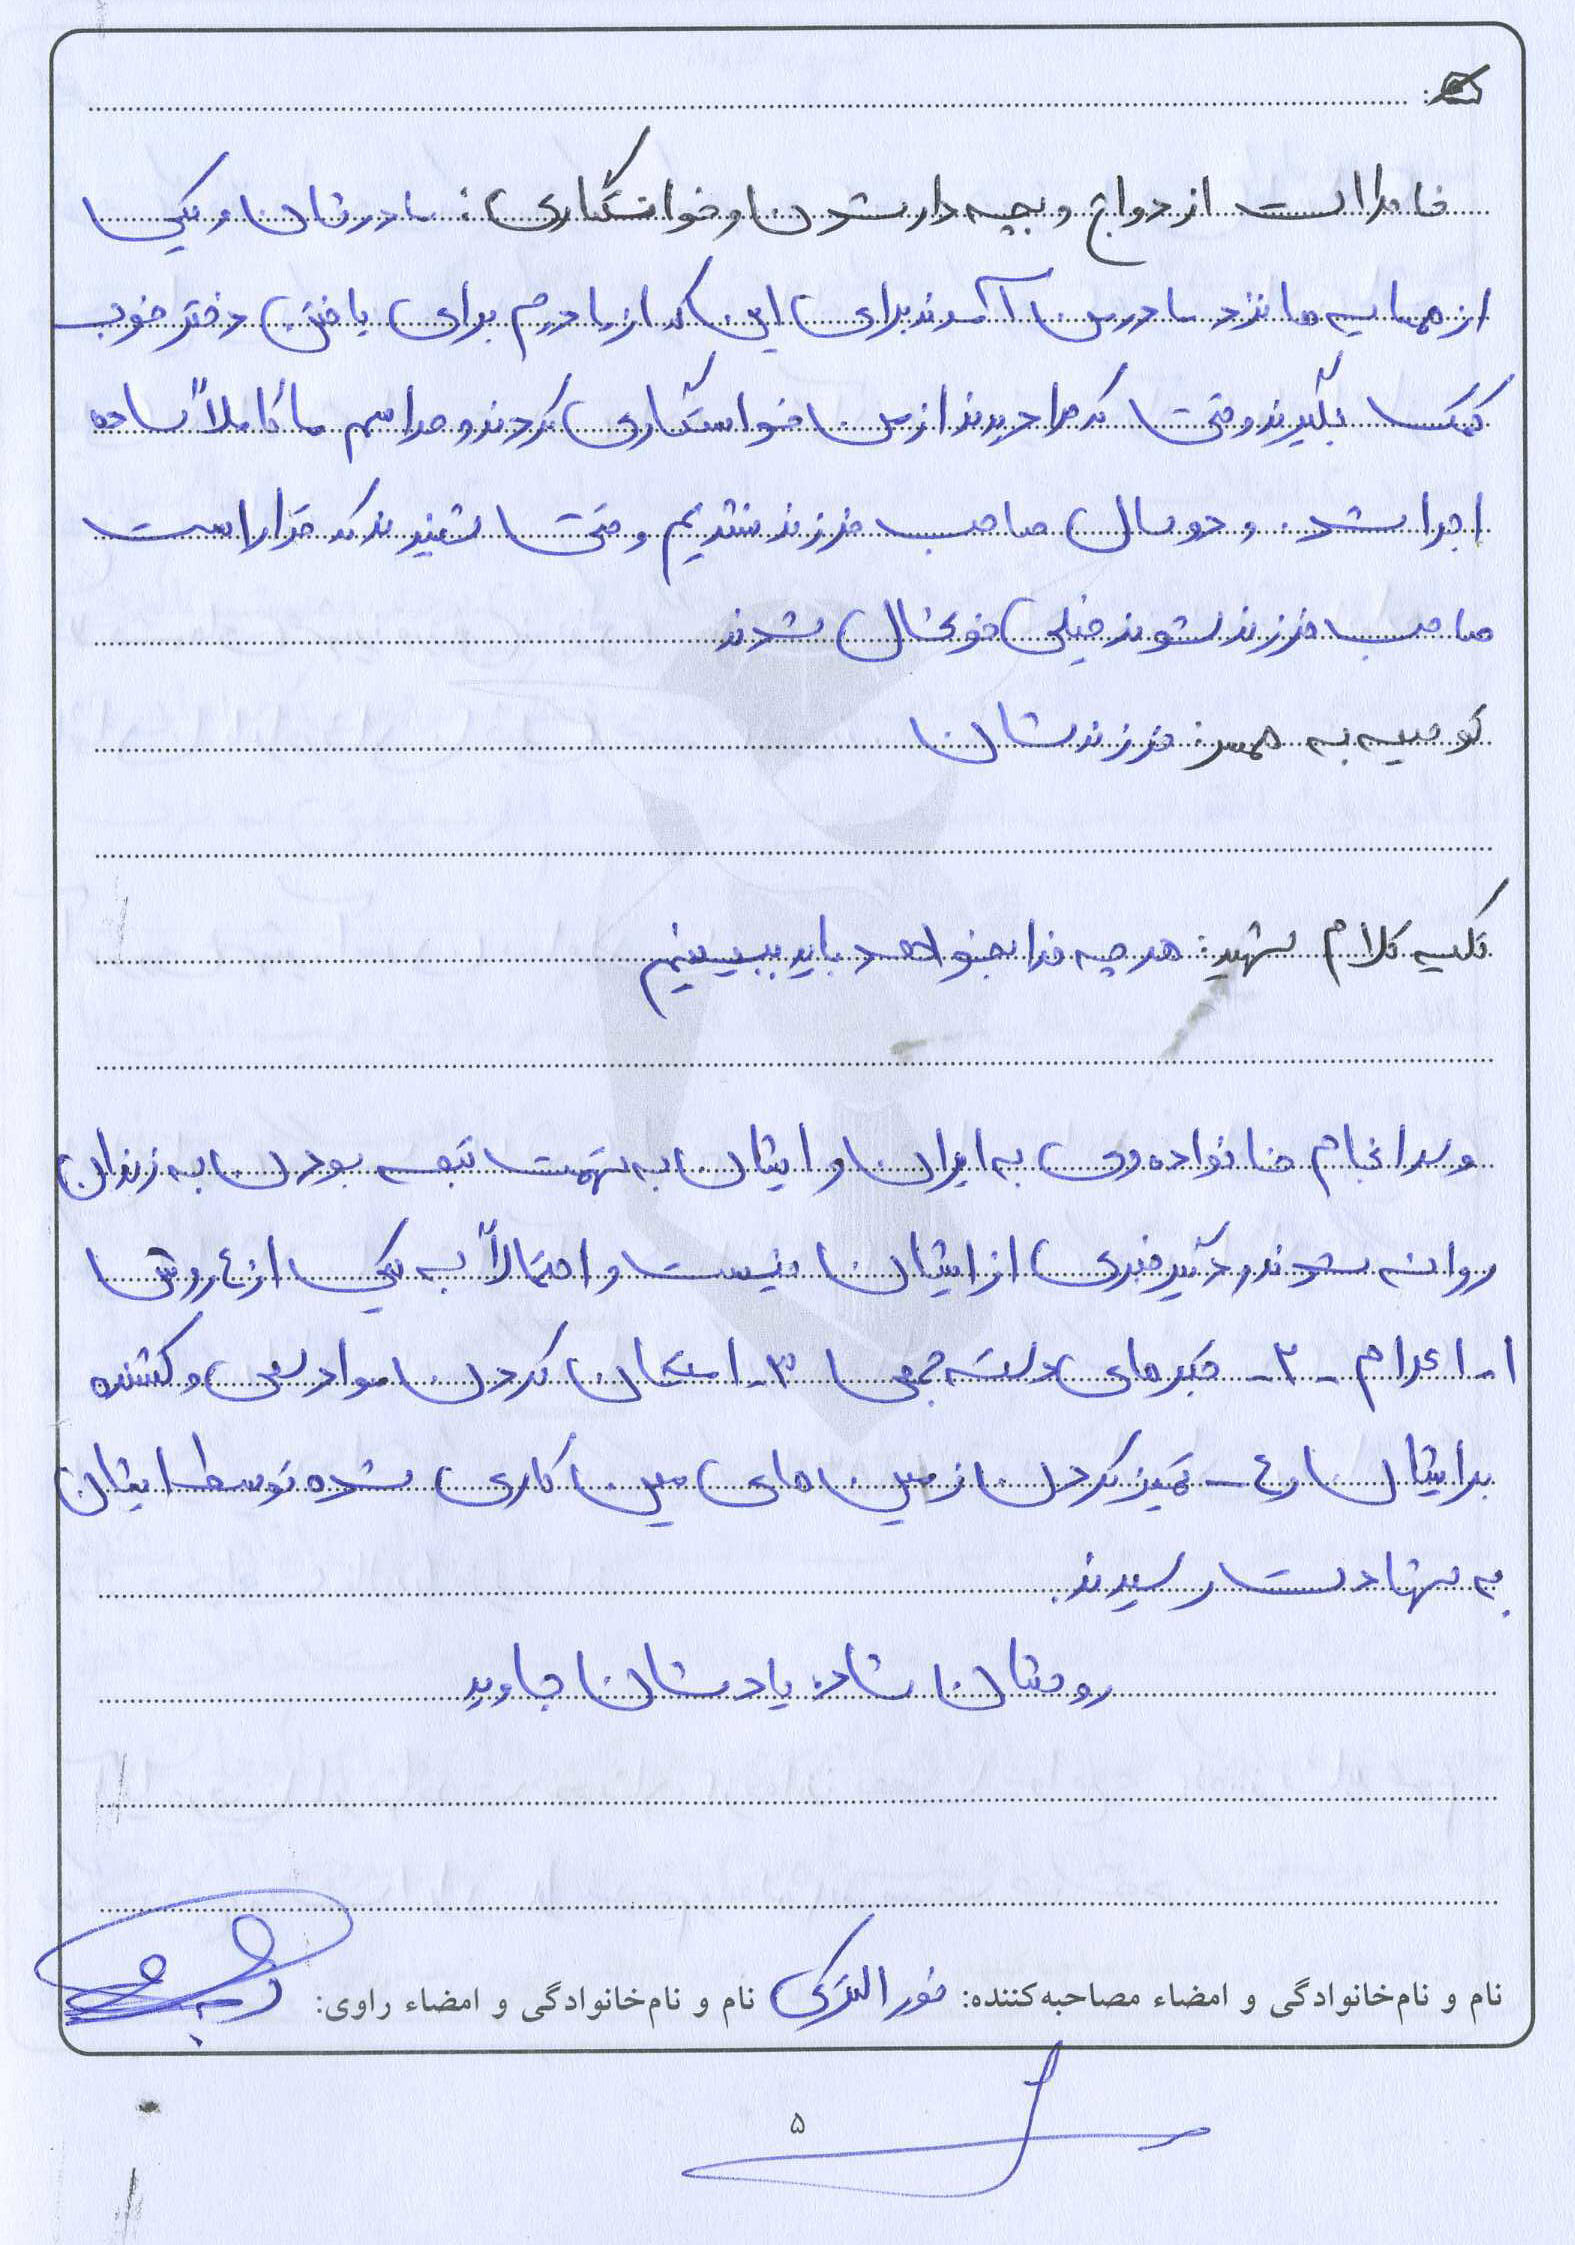 خاطرات ازدواج و بچه دار شدن و خواستگاری: مادرشان و یکی
از همسایه ها نزد مادرش آمدند برای این که از مادرم برای یافتن دختر خوب
کمک بگیرند وقتی که مرا دیدند از من خواستگاری کردند و مراسم ما کاملاً ساده
اجرا شد. و دو سال صاحب فرزند نشدیم وقتی شنیدند که قرار است
صاحب فرزند شوند خیلی خوشحال شدند
توصیه به همسر: فرزندشان
تکیه کلام شهید: هر چه خدا بخواهد باید ببینیم
و سرانجام خانواده وی به ایران و ایشان به تهمت تبعه بودن به زندان
روانه شدند دیگر خبری از ایشان نیست و احتمالاً به یکی از ۴ روش
۱- اعدام - ۲- قبرهای دسته جمعی ۳- امتحان کردن مواد سمی و کشنده
بر ایشان و ۴- تمیز کردن زمین های مین کاری شده توسط ایشان
به شهادت رسیدند.
روحشان شاد، یادشان جاوید
نام و نام‌خانوادگی و امضاء مصاحبه‌کننده: نام و نام‌خانوادگی و امضاء راوی:
۵